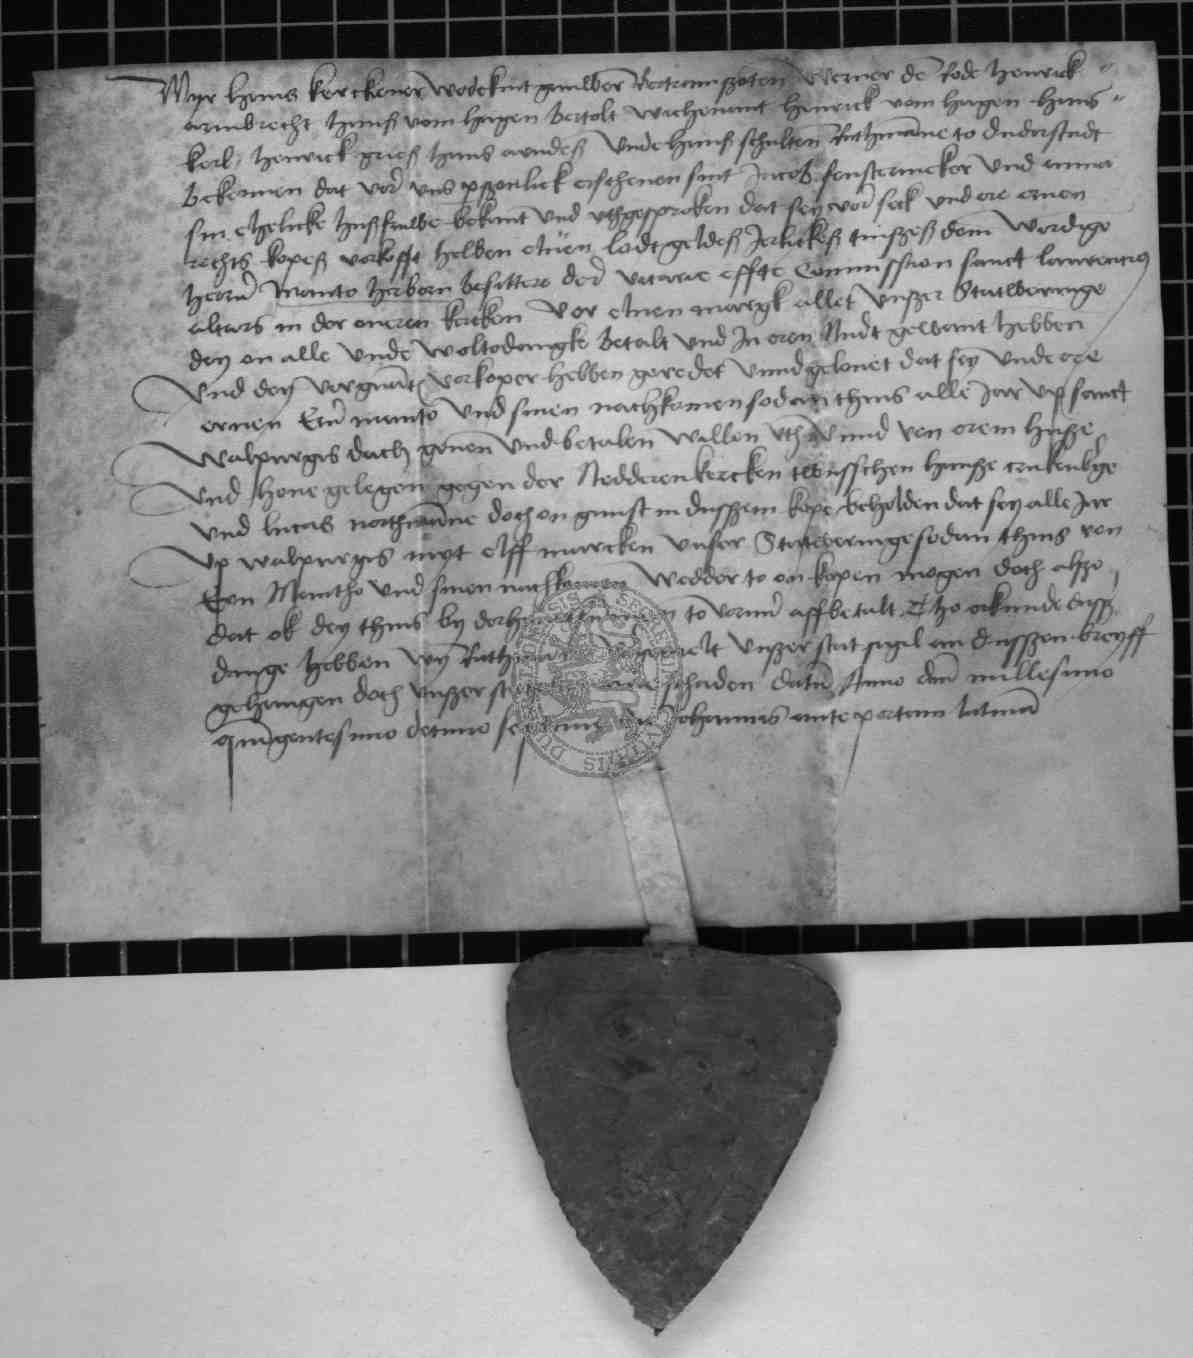 Wyr hans kerckener wedekint Bertram Werner de Rode henrick
armbrecht hans vom hagen Bertolt wachenant hinrick vom hagen hans
kerl henrick grieß hans arndeß Unde hanß schulten Rathmane to duderstadt
Bekennen dat vor uns personlick erschenen sint Jacob fenstermeker und anna
sin elicke husfruwe bekant und uthgesproken dat sey vor seck und ore erven
rechts kopeß vorkofft hebben eluen lodt geldeß Jerlickeß tinßeß dem werdige
herrn manito herborn besittere der vicarie effte Commission sanct laurencius
altars in der oueren kerken Vor eluen margk allet Unßer Statweringe
dey on alle Unde woltodangke Betalt Und In oren Nudt gewant hebben
Und dey vorgnant vorkoper hebben geredet Unnd gelouet dat sey Unde ore
eruen Ern manito Und sinen nachkomen sodan thins alle Jar up sanct
Walpurgis dach geuen Und betalen willen uth Unnd von orem huße
Und houe gelegen gegen der Nedderenkercken twusschen hanße
Und lucas northmane doch on gunst in dußem kope beholden dat sey alle Jar
Up walpurgis myt elff marcken Unser Statweringe sodan thins von
Ern Manitho Und sinen nachkomen Wedder to on kopen mogen doch alßo
dat ok dey thins by der to vorumb affbetalt Tho orkunde dusß
dinge hebben wy Rathmane Unßer stat sigil an dusßen breyff
gehangen doch Unßer stat schaden Datum Anno dm millesimo
quingentesimo decimo Johannis ante portam latinam